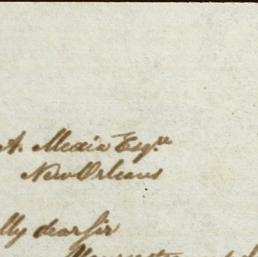 A. Mexia Esqre
New Orleans
My dear Sir